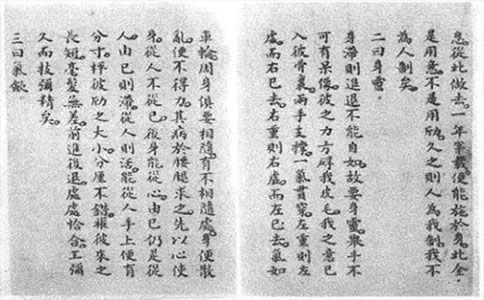 息從此做去。一年半載便能施於身。此全
是用意。不是用劲。久之則人為我制。我不
為人制矣。
二曰身靈。
身滯則進退不能自如。故要身靈。舉手不
可有呆像。彼之力方碍我皮毛。我之意已
入彼骨裏。兩手支撑。一氣貫穿。左重則左
虛而右已去。右重則右虛而左已去。氣如
車輪。周身俱要相隨。有不相隨處。身便散
亂。便不得力。其病於腰腿求之。先以心使
身。從人不從己。後身能從心。由己仍是從
人。由己則滯。從人則活。能從人手上便有
分寸。秤彼劲之大小。分厘不錯。權彼來之
長短。毫髮無差。前進後退。處處恰合。工彌
久而技彌精矣。
三曰氣歛